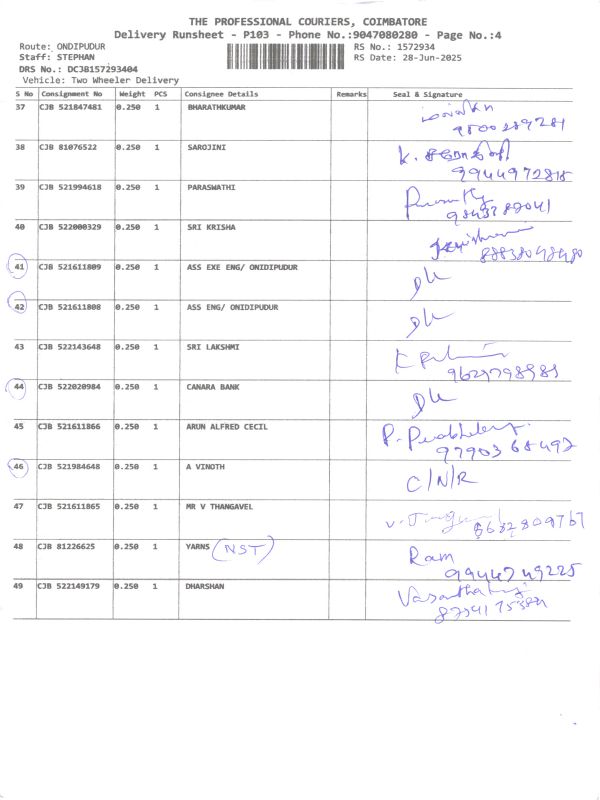 THE PROFESSIONAL COURIERS, COIMBATORE
Delivery Runsheet - P103 - Phone No.:9047080280 - Page No.:4
Route: ONDIPUDUR RS No.: 1572934
Staff: STEPHAN RS Date: 28-Jun-2025
DRS No.: DCJB157293404
Vehicle: Two Wheeler Delivery
S No Consignment No Weight PCS Consignee Details Remarks Seal & Signature
37 CJB 521847481 0.250 1 BHARATHKUMAR
9500289281
38 CJB 81076522 0.250 1 SAROJINI K.
9944972815
39 CJB 521994618 0.250 1 PARASWATHI
40 CJB 522000329 0.250 1 SRI KRISHA
41 CJB 521611809 0.250 1 ASS EXE ENG/ ONIDIPUDUR DL
42 CJB 521611808 0.250 1 ASS ENG/ ONIDIPUDUR DL
43 CJB 522143648 0.250 1 SRI LAKSHMI
9629798983
44 CJB 522020984 0.250 1 CANARA BANK DL
45 CJB 521611866 0.250 1 ARUN ALFRED CECIL P.
9790368492
46 CJB 521984648 0.250 1 A VINOTH C/N/R
47 CJB 521611865 0.250 1 MR V THANGAVEL V.
48 CJB 81226625 0.250 1 YARNS (NST) Ram
9944749225
49 CJB 522149179 0.250 1 DHARSHAN